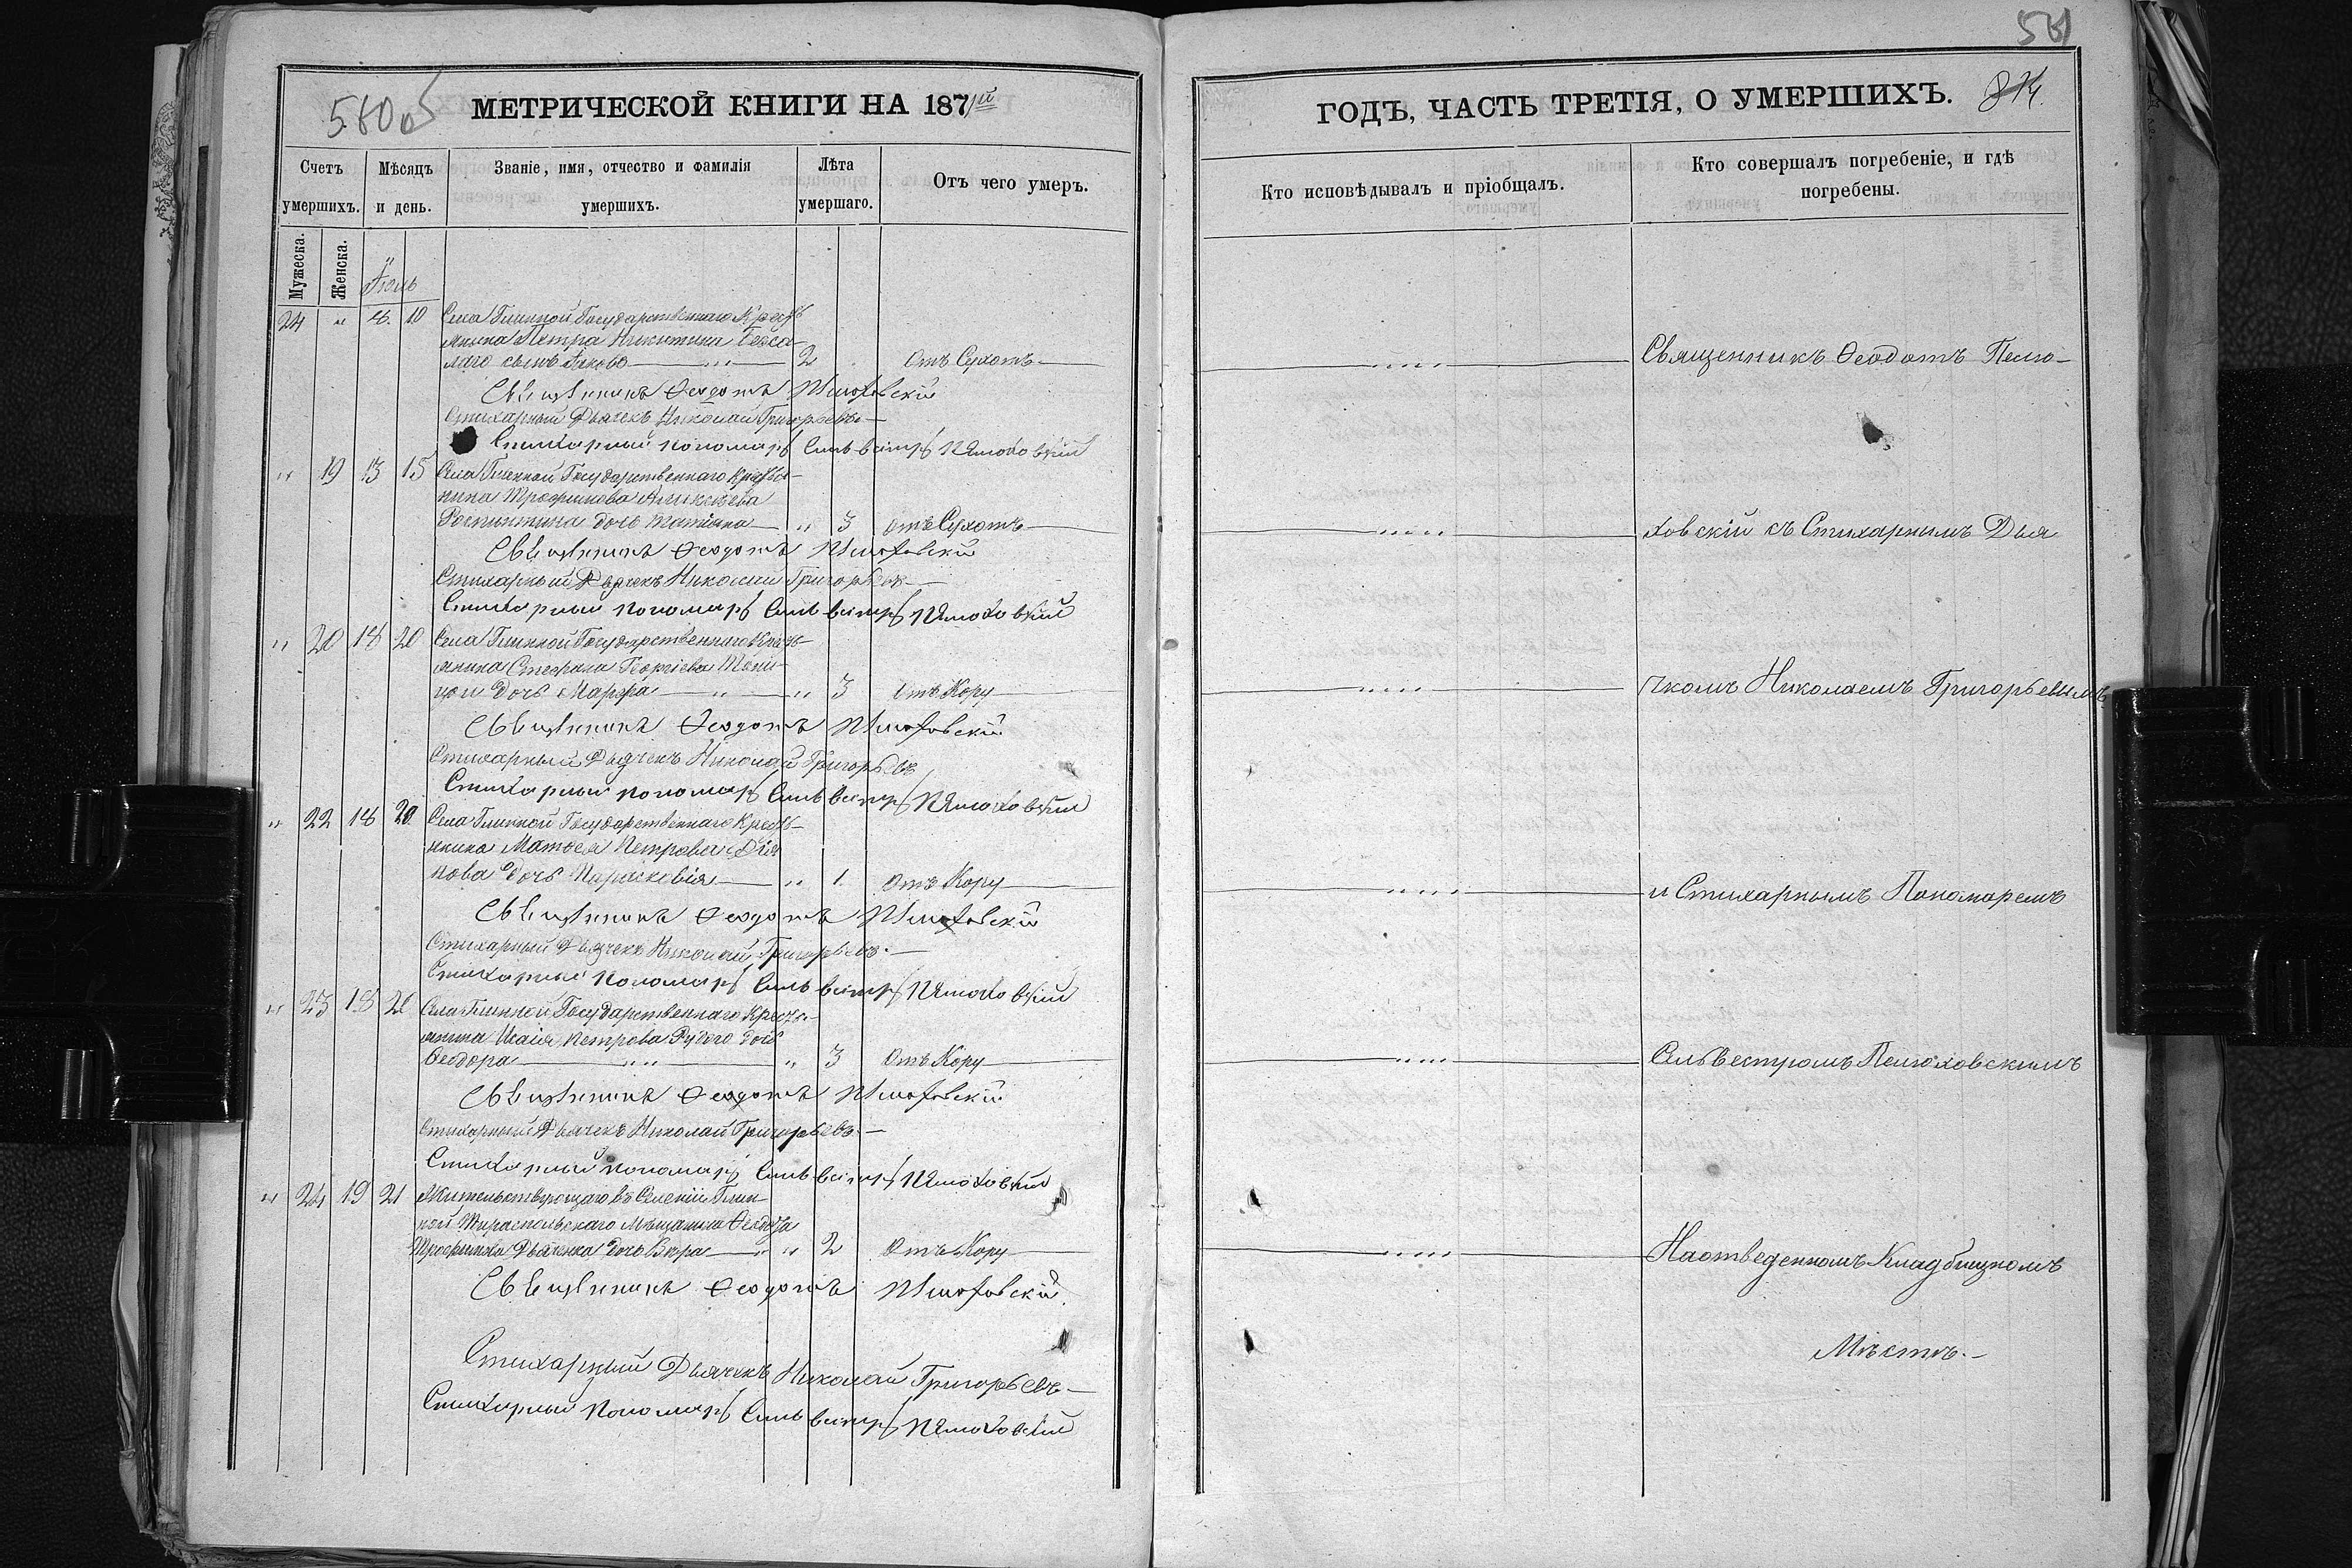 580 об
МЕТРИЧЕСКОЙ КНИГИ НА 1871й
Счетъ умершихъ.
Мѣсяцъ и день.
Званіе, имя, отчество и фамилія умершихъ.
Лѣта умершаго.
Отъ чего умеръ.
Мужеска.
Женска.
Іюль
24 " 8. 10 Села Глинной Государственнаго Кресть
янина Петра Никитина
сынъ Іаковъ 2 отъ Сухотъ
Священникъ Ѳеодотъ Пелюховскій
Стихарный Дьячекъ Николай Григорьевъ
Стихарный пономарь Сильвестръ Пелюховскій
" 19 13 15 Села Глинной Государственнаго Кресть-
янина Трофимова Алексѣева
дочь Татіана " 3 отъ Сухотъ
Священникъ Ѳеодотъ Пелюховскій
Стихарный Дьячекъ Николай Григорьевъ
Стихарный пономарь Сильвестръ Пелюховскій
" 20 18 20 Села Глинной Государственнаго Кресть-
янина Стефана Георгіева
дочь Марфа " 3 отъ Кору
Священникъ Ѳеодотъ Пелюховскій
Стихарный Дьячекъ Николай Григорьевъ
Стихарный пономарь Сильвестръ Пелюховскій
" 22 18 20 Села Глинной Государственнаго Кресть-
янина Матвея Петрова
дочь Параскевія " 1. отъ Кору
Священникъ Ѳеодотъ Пелюховскій
Стихарный Дьячекъ Николай Григорьевъ.
Стихарный пономарь Сильвестръ Пелюховскій
" 23 18 20 Села Глинной Государственнаго Кресть-
янина Исаія Петрова Рудого дочь
Ѳеодора " 3 отъ Кору
Священникъ Ѳеодотъ Пелюховскій
Стихарный Дьячекъ Николай Григорьевъ.
Стихарный пономарь Сильвестръ Пелюховскій
" 24 19 21 Жительствующаго въ Селеніи Глин-
ной Тираспольскаго Мѣщанина
Трофимова Дьяченка дочь Вѣра " 2 отъ Кору
Священникъ Ѳеодотъ Пелюховскій
Стихарный Дьячекъ Николай Григорьевъ
Стихарный пономарь Сильвестръ Пелюховскій
ГОДЪ, ЧАСТЬ ТРЕТІЯ, О УМЕРШИХЪ.
Кто исповѣдывалъ и пріобщалъ.
Кто совершалъ погребеніе, и гдѣ погребены.
Священникъ Ѳеодотъ Пелю-
ховскій съ Стихарнымъ Дья
чкомъ Николаемъ Григорьевымъ
и Стихарнымъ Пономаремъ
Сильвестромъ Пелюховскимъ
На отведенномъ Кладбищномъ
Мѣстѣ.